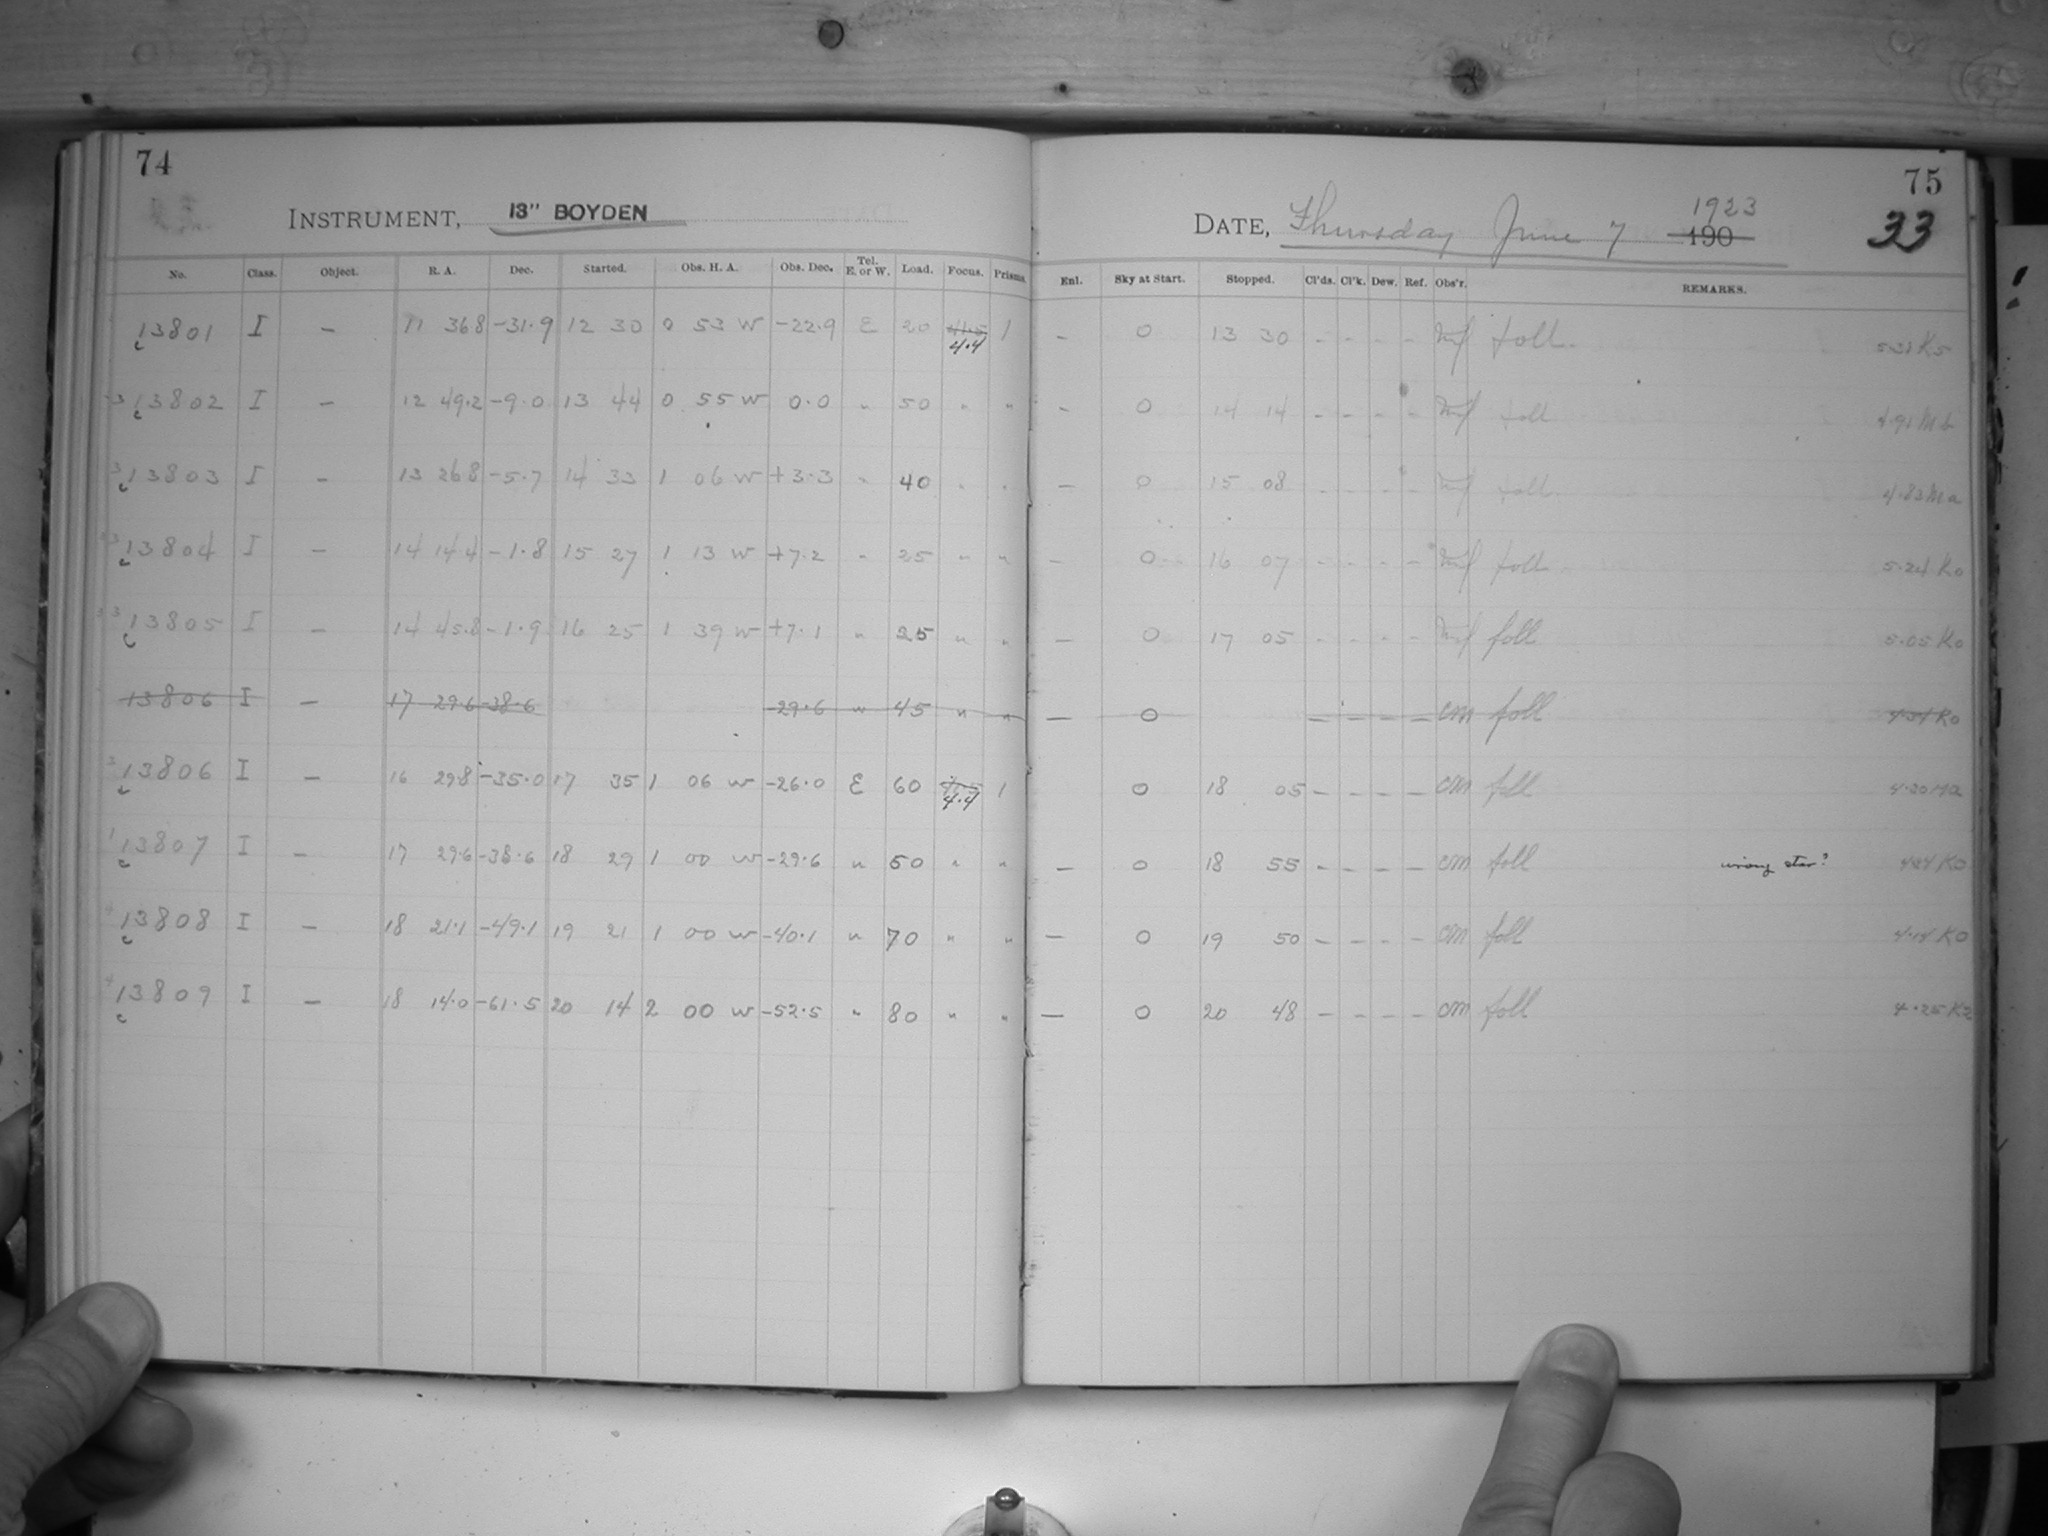 74
INSTRUMENT, 13" BOYDEN
No. Class. Object. R. A. Dec. Started. Obs. H. A. Obs. Dec. Tel. E. or W. Load. Focus. Prisms.
13801 I – 11 36.8 -31.9 12 30 0 53 W -22.9 E 20 4.4 1
13802 I – 12 49.2 -9.0 13 44 0 55 W 0.0 " 50 " "
13803 I – 13 26.8 -5.7 14 33 1 06 W +3.3 " 40 " "
13804 I – 14 14.4 -1.8 15 27 1 13 W +7.2 " 25 " "
13805 I – 14 45.8 -1.9 16 25 1 39 W +7.1 " 25 " "
13806 I – 17 29.6 -38.6 -29.6 " 45 " "
13806 I – 16 29.8 -35.0 17 35 1 06 W -26.0 E 60 4.4 1
13807 I – 17 29.6 -38.6 18 29 1 00 W -29.6 " 50 " "
13808 I – 18 21.1 -49.1 19 21 1 00 W -40.1 " 70 " "
13809 I – 18 14.0 -61.5 20 14 2 00 W -52.5 " 80 " "
75
DATE, Thursday June 7 1923
190
33
Enl. Sky at Start. Stopped. Cl'ds. Cl'k. Dew. Ref. Obs'r. REMARKS.
– 0 13 30 – – – – foll.
– 0 14 14 – – – – foll 4.91 Mb
– 0 15 08 – – – – foll 4.83 Ma
– 0 16 07 – – – – foll 5.24 K0
– 0 17 05 – – – – foll 5.05 K0
– 0 – – – – cm foll
0 18 05 – – – – cm foll 4.20 Ma
– 0 18 55 – – – – cm foll wrong star?
– 0 19 50 – – – – cm foll 4.14 K0
– 0 20 48 – – – – cm foll 4.25 K2